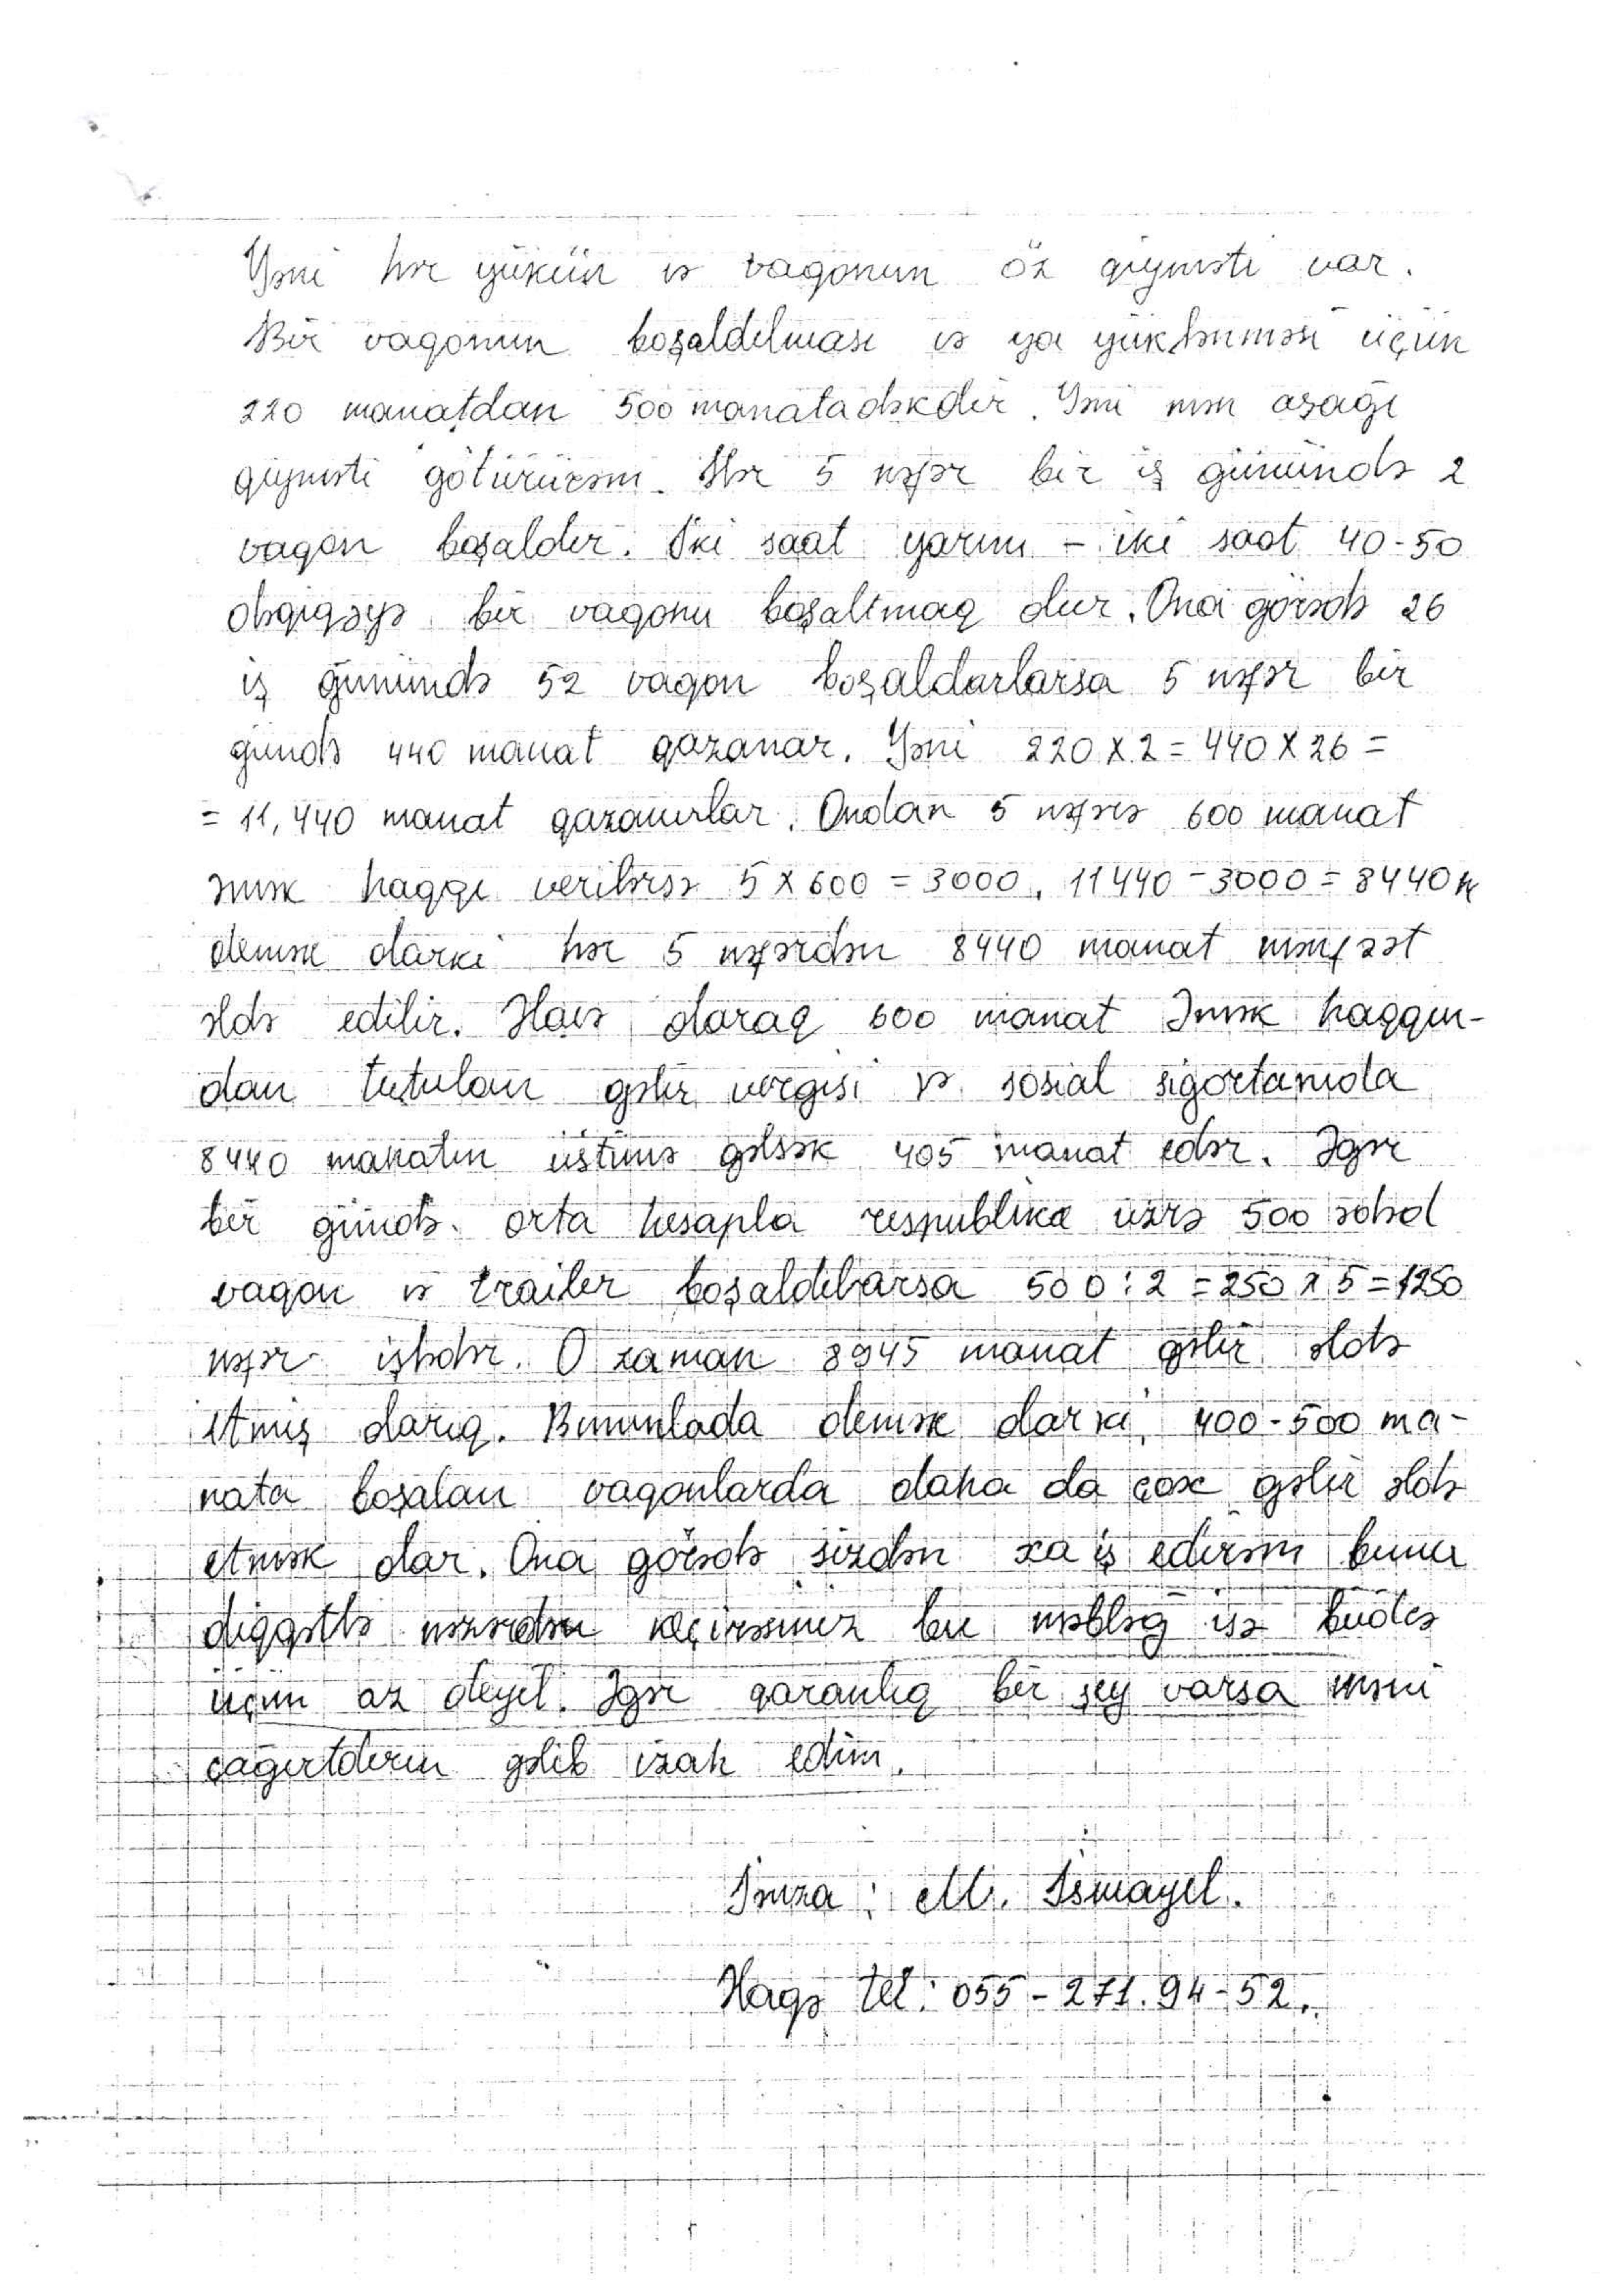 Yəni hər yükün və vagonun öz qiyməti var.
Bir vagonun boşaldılması və ya yüklənməsi üçün
220 manatdan 500 manatadəkdir. Yəni mən aşağı
qiyməti götürürəm. Hər 5 nəfər bir iş günündə 2
vagon boşaldır. İki saat yarım - iki saat 40-50
dəqiqəyə bir vagonu boşaltmaq olur. Ona görədə 26
iş günündə 52 vagon boşaldarlarsa 5 nəfər bir
gündə 440 manat qazanar. Yəni 220 x 2 = 440 x 26 =
= 11,440 manat qazanırlar. Ondan 5 nəfərə 600 manat
əmək haqqı verilərsə 5 x 600 = 3000. 11440 - 3000 = 8440 м
demək olarki hər 5 nəfərdən 8440 manat mənfəət
əldə edilir. Həlvə olaraq 600 manat Əmək haqqın-
dan tutulan gəlir vergisi və sosial sığortanıda
8440 manatın üstünə gəlsək 405 manat edər. Əgər
bir gündə orta hesapla respublika üzrə 500 ədəd
vagon və trailer boşaldılarsa 500 : 2 = 250 x 5 = 1250
nəfər işlədər. O zaman 8945 manat gəlir əldə
etmiş olarıq. Bununlada demək olar ki, 400-500 ma-
nata boşalan vagonlarda daha da çox gəlir əldə
etmək olar. Ona görədə sizdən xaiş edirəm bunu
diqqətlə nəzərdən keçirəsiniz bu məbləğ isə büdcə
üçün az deyil. Əgər qaranlıq bir şey varsa məni
çağırtdırın gəlib izah edim.
İmza : M. İsmayıl.
Əlaqə tel: 055 - 271. 94 - 52.